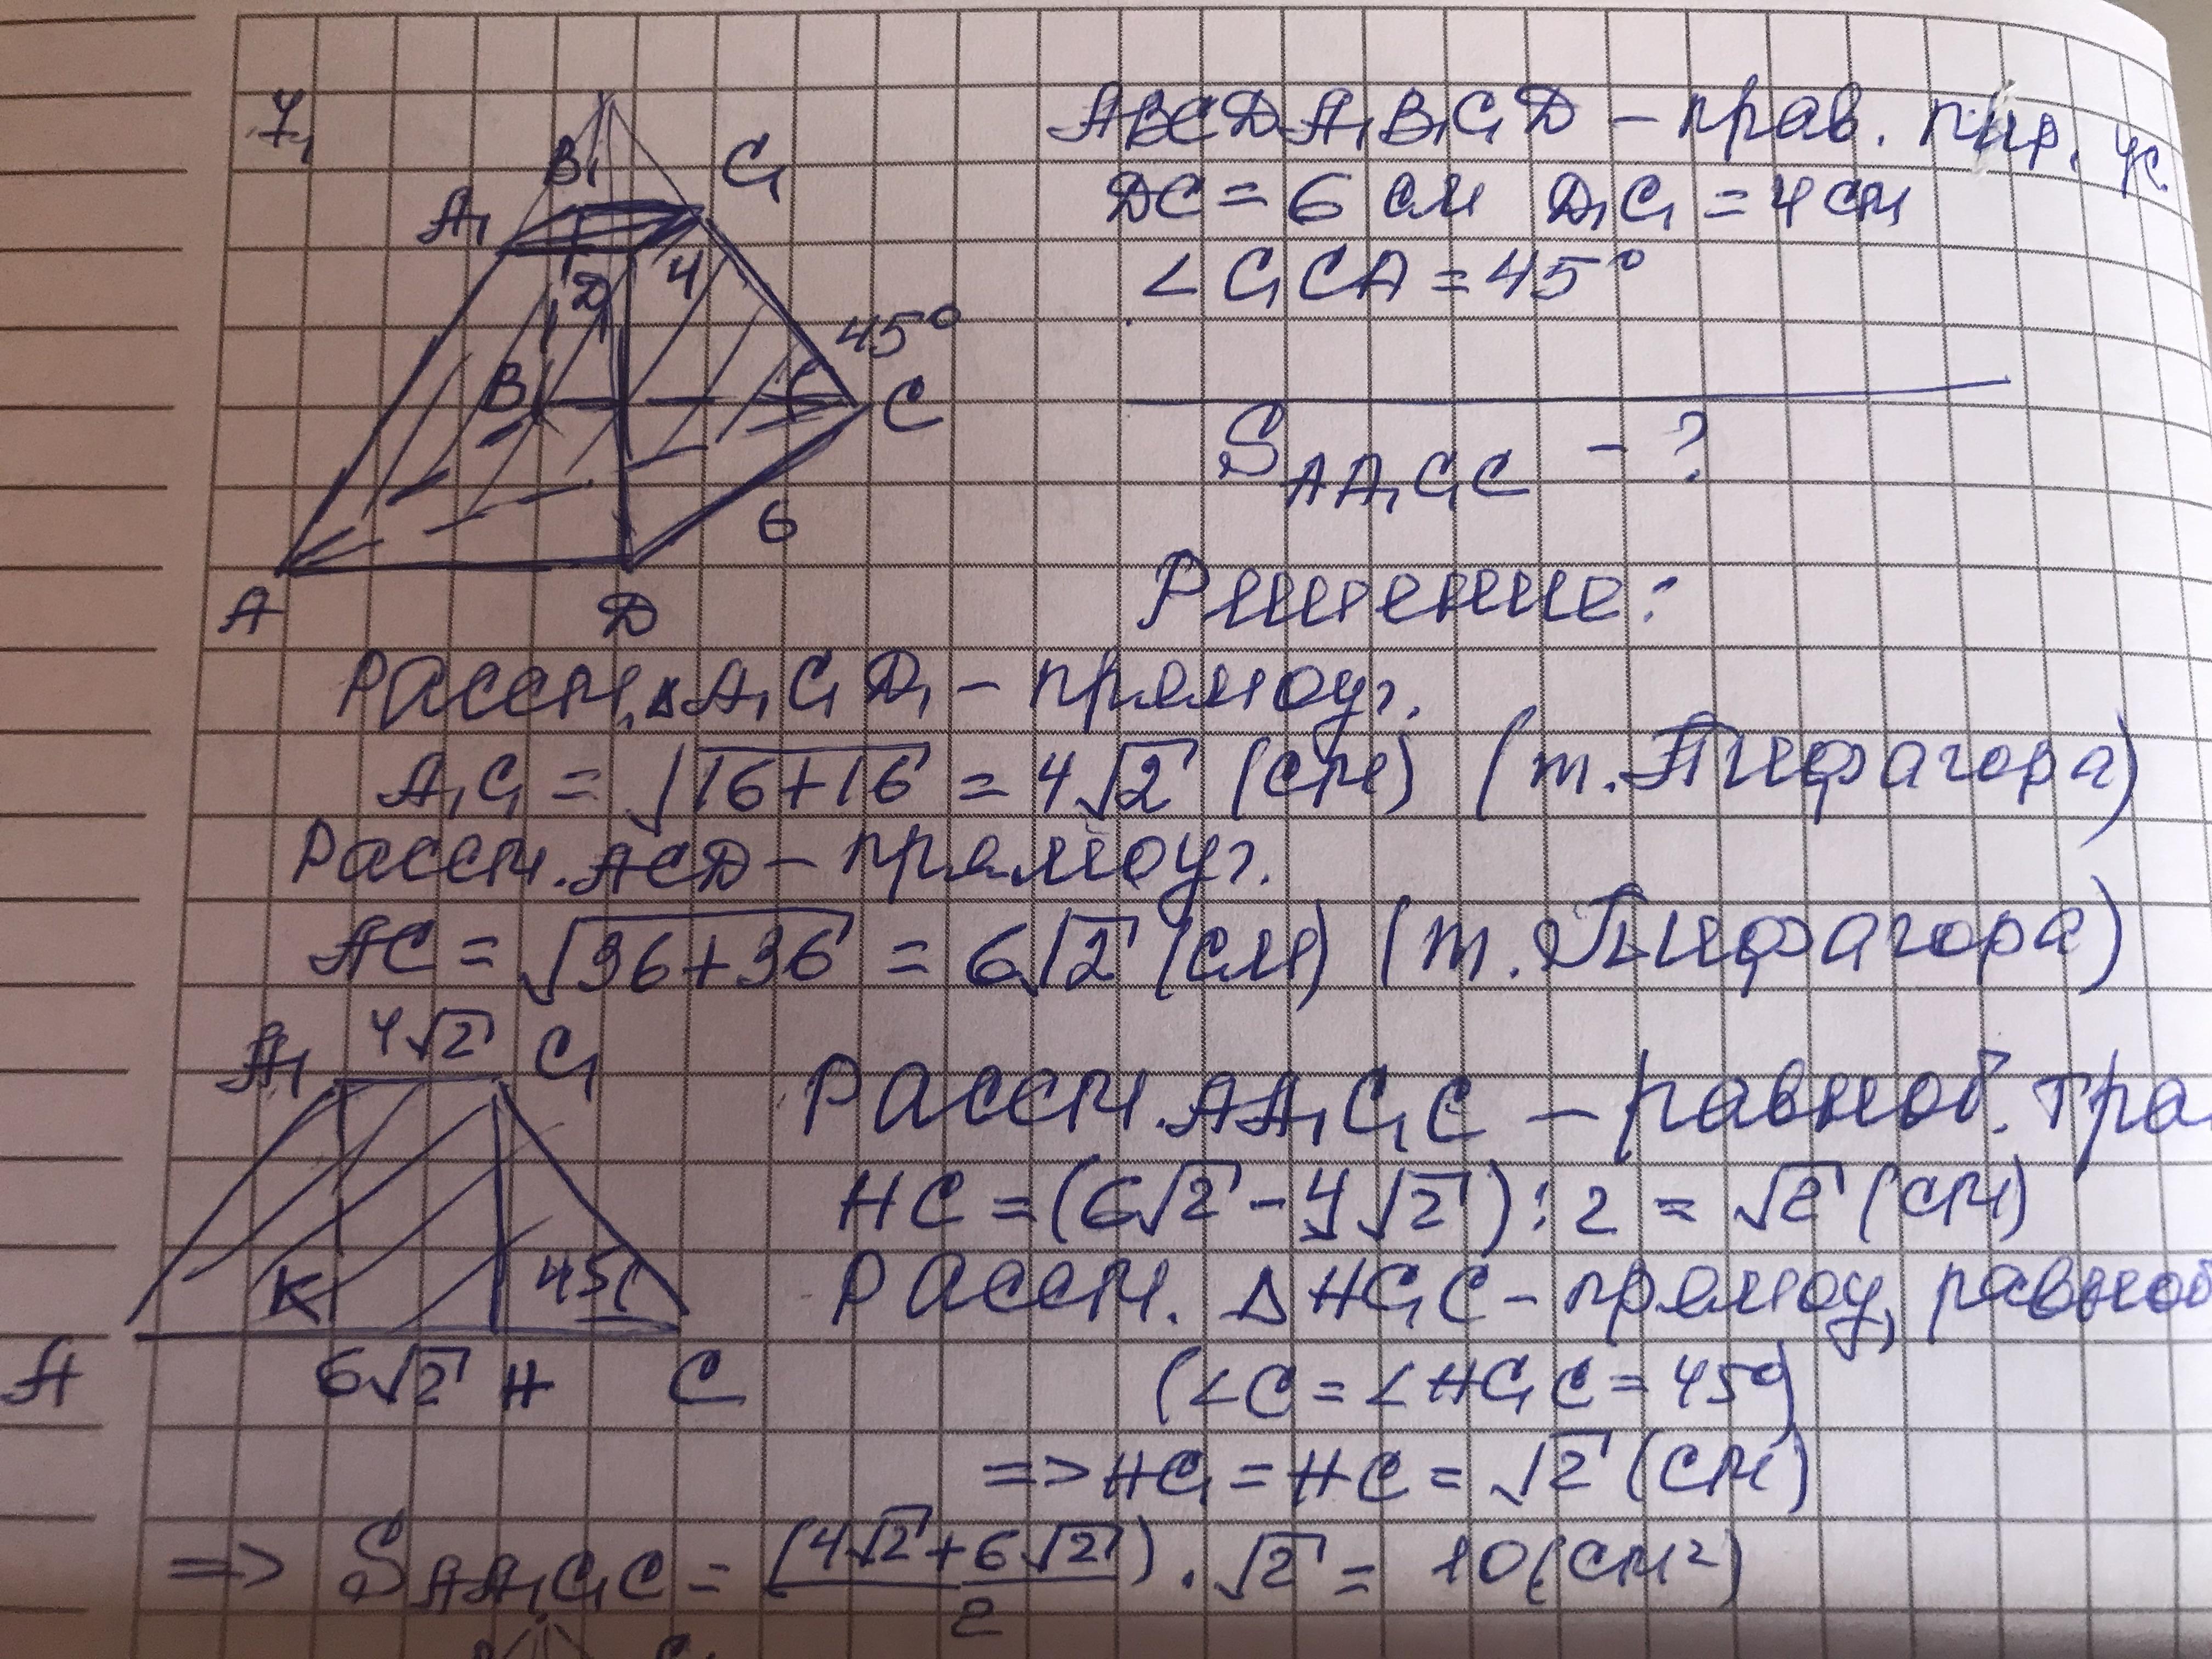 B₁
C₁
A₁
D₁
4
45°
B
C
6
A
D
ABCDA₁B₁C₁D - прав. пир. ус.
DC = 6 см D₁C₁ = 4 см
∠C₁CA = 45°
S AA₁C₁C - ?
Решение:
Рассм. △A₁C₁D₁ - прямоуг.
A₁C₁ = √16+16 = 4√2 (см) (т. Пифагора)
Рассм. ACD - прямоуг.
AC = √36+36 = 6√2 (см) (т. Пифагора)
A₁ 4√2 C₁
K 45
A 6√2 H C
Рассм. AA₁C₁C - равноб. тра
HC = (6√2 - 4√2) : 2 = √2 (см)
Рассм. △HC₁C - прямоу, равноб
(∠C = ∠HC₁C = 45°)
=> HC₁ = HC = √2 (см)
=> S AA₁C₁C = (4√2 + 6√2)/2 · √2 = 10 (см²)